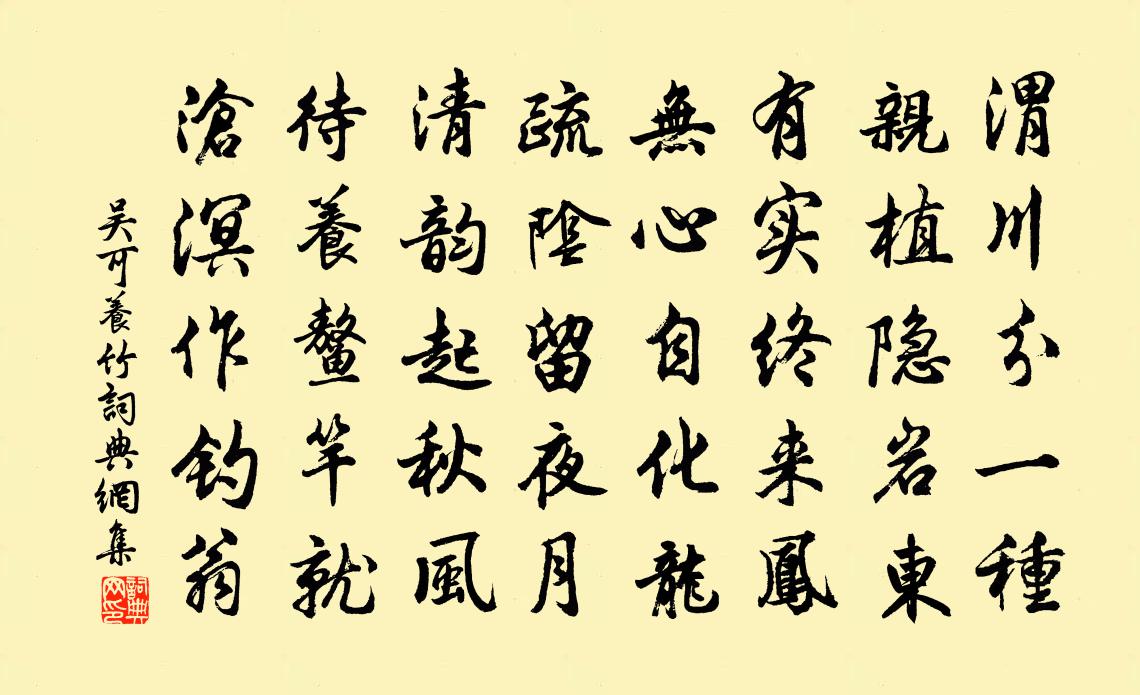 渭川分一種
親植隐岩東
有实终来鳳
無心自化龍
疏陰留夜月
清韵起秋風
待養鰲竿就
滄溟作钓翁
吴可養竹詞典網集
詞典网印